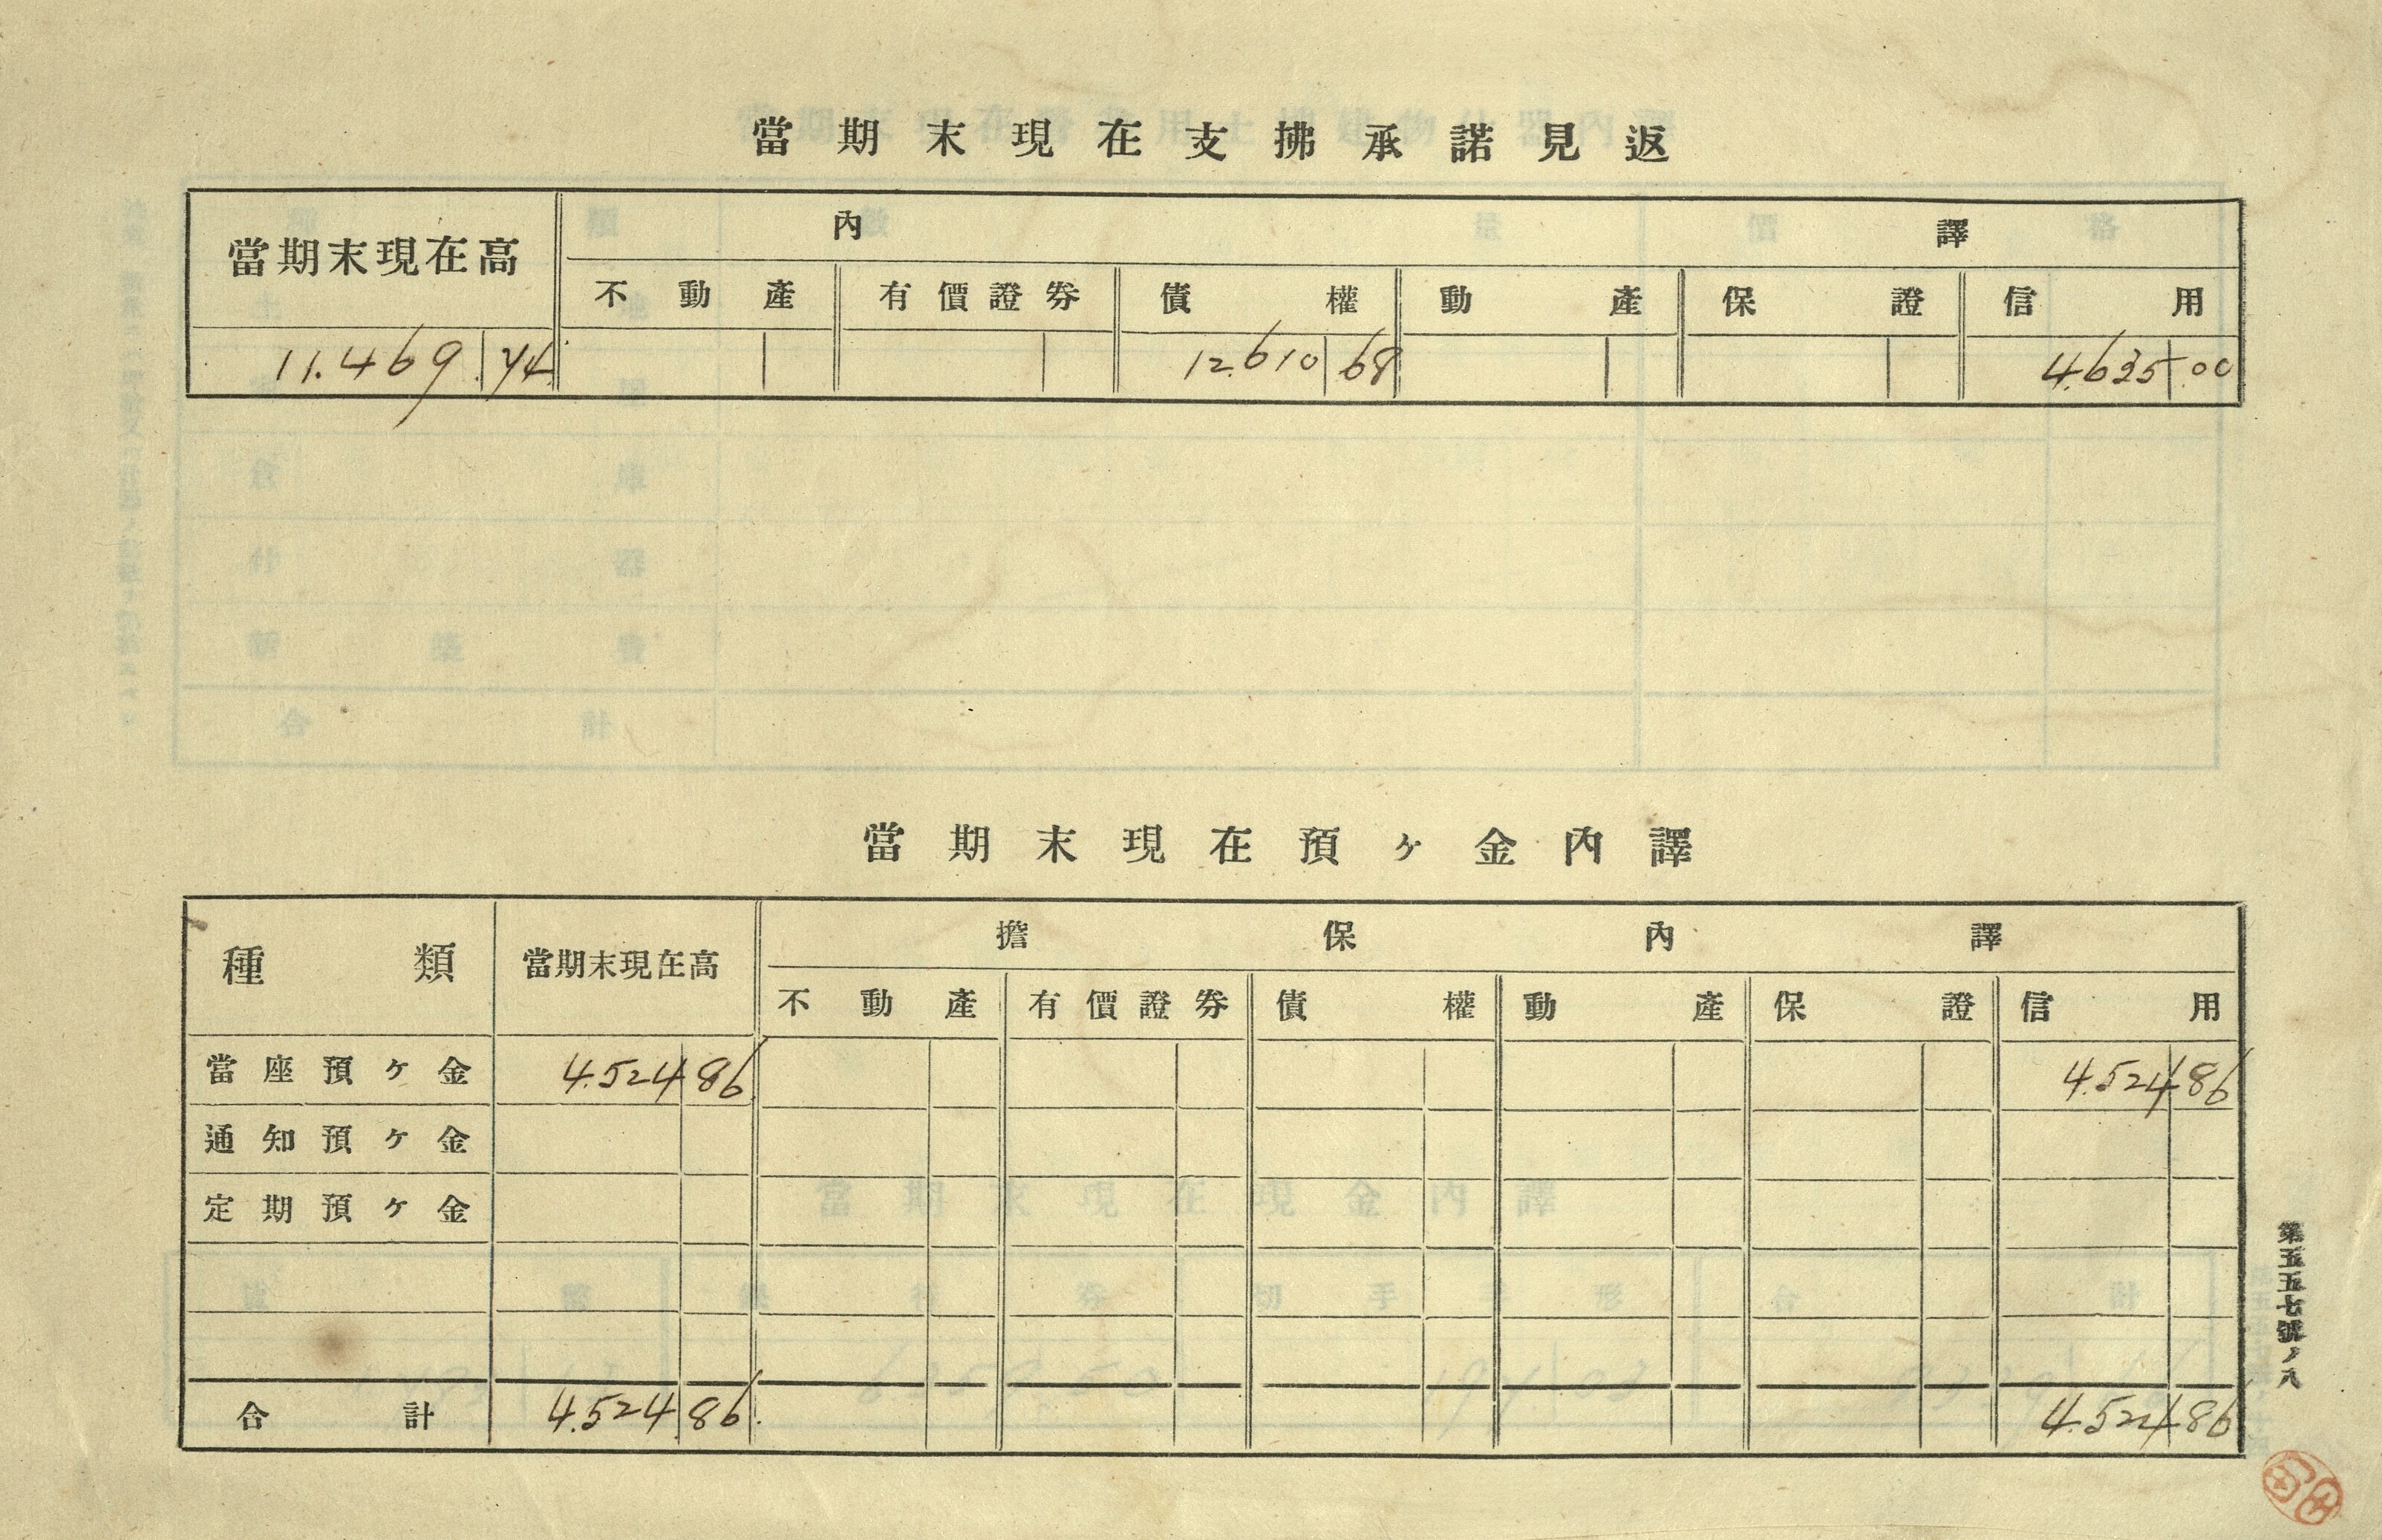 當期末現在支拂承諾見返
當期末現在高 內譯
不動產 有價證券 債權 動產 保證 信用
11.469 74 12.610 68 4.635 00
當期末現在預ヶ金內譯
種類 當期末現在高 擔保內譯
不動產 有價證券 債權 動產 保證 信用
當座預ヶ金 4.524 86 4.524 86
通知預ヶ金
定期預ヶ金
合計 4.524 86 4.524 86
第五五七號ノ八